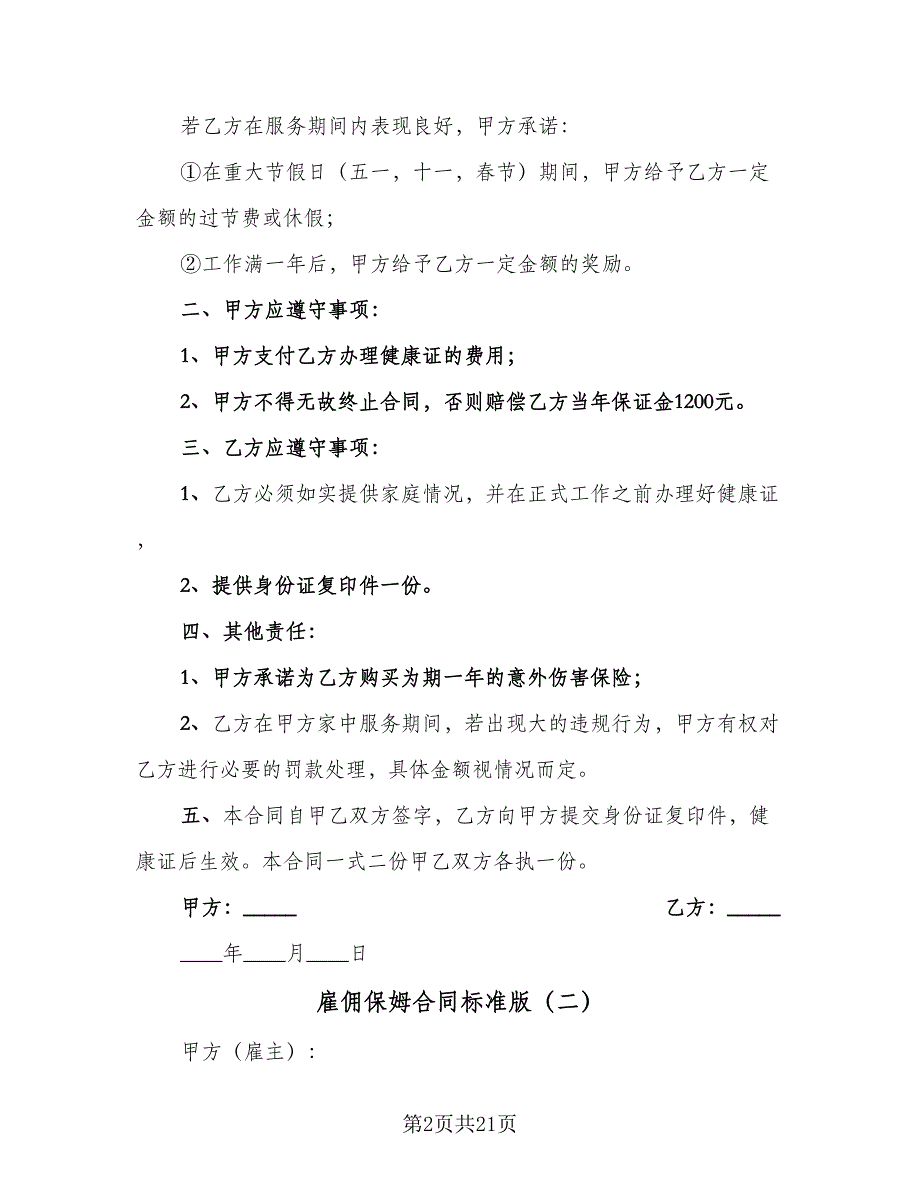 若乙方在服务期间内表现良好，甲方承诺：
①在重大节假日（五一，十一，春节）期间，甲方给予乙方一定
金额的过节费或休假；
②工作满一年后，甲方给予乙方一定金额的奖励。
二、甲方应遵守事项：
1、甲方支付乙方办理健康证的费用；
2、甲方不得无故终止合同，否则赔偿乙方当年保证金1200元。
三、乙方应遵守事项：
1、乙方必须如实提供家庭情况，并在正式工作之前办理好健康证
，
2、提供身份证复印件一份。
四、其他责任：
1、甲方承诺为乙方购买为期一年的意外伤害保险；
2、乙方在甲方家中服务期间，若出现大的违规行为，甲方有权对
乙方进行必要的罚款处理，具体金额视情况而定。
五、本合同自甲乙双方签字，乙方向甲方提交身份证复印件，健
康证后生效。本合同一式二份甲乙双方各执一份。
甲方：_____ 乙方：_____
____年____月____日
雇佣保姆合同标准版（二）
甲方（雇主）：
第2页共21页